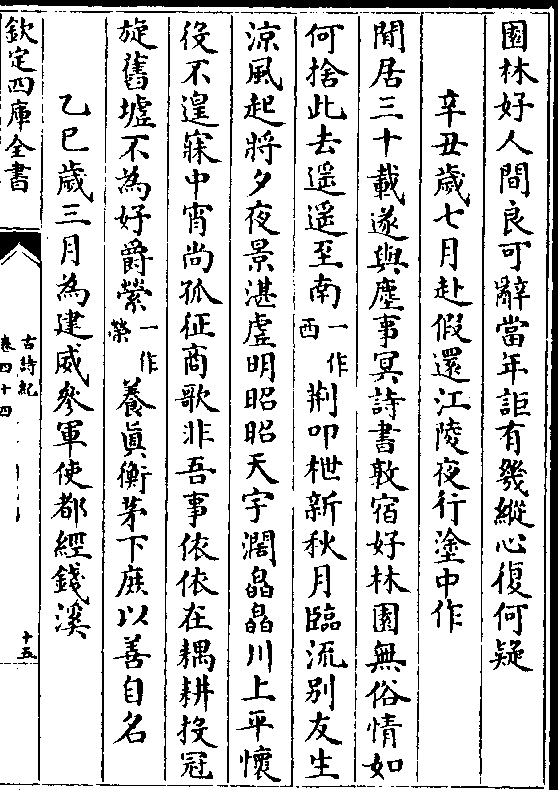 園林好人間良可辭當年詎有幾縱心復何疑
辛丑歲七月赴假還江陵夜行塗中作
閒居三十載遂與塵事冥詩書敦宿好林園無俗情如
何捨此去遥遥至南一作西荆叩枻新秋月臨流别友生
涼風起將夕夜景湛虚明昭昭天宇濶皛皛川上平懷
役不遑寐中宵尚孤征商歌非吾事依依在耦耕投冠
旋舊墟不為好爵縈一作榮養真衡茅下庶以善自名
乙巳歲三月為建威參軍使都經錢溪
欽定四庫全書
古詩紀
卷四十四
十五